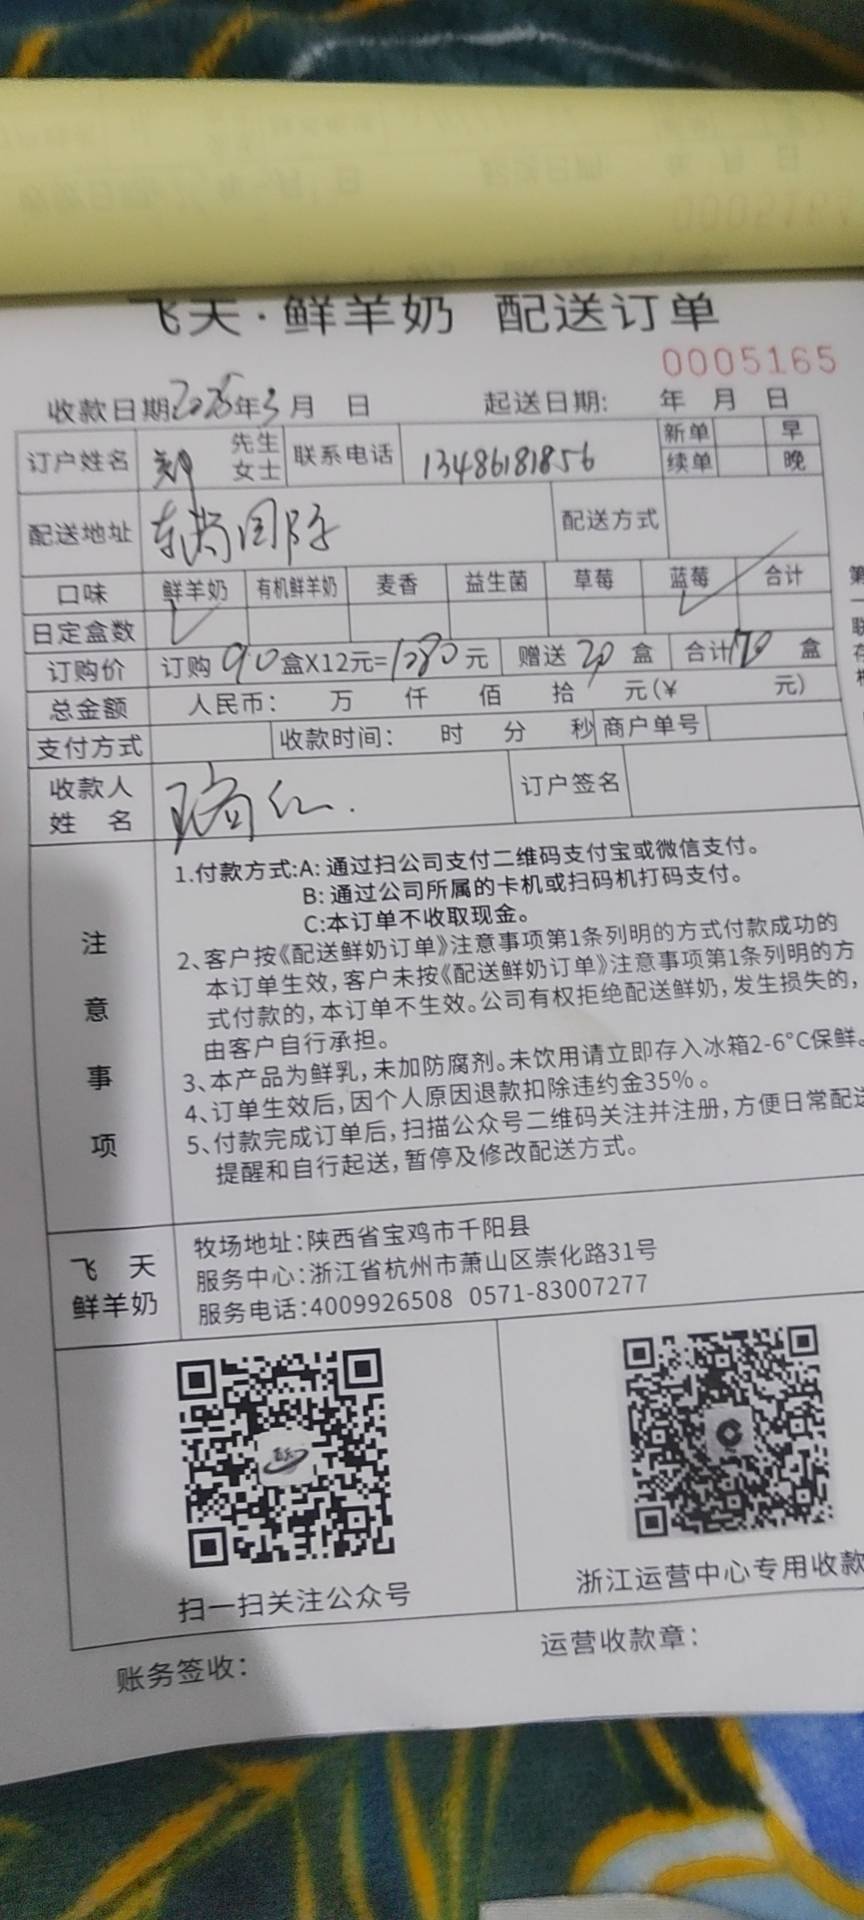 飞天·鲜羊奶 配送订单
0005165
收款日期2025年3月 日 起送日期: 年 月 日
订户姓名 郑 先生 女士 联系电话 13486181856 新单 早
续单 晚
配送地址 东 国际 配送方式
口味 鲜羊奶 有机鲜羊奶 麦香 益生菌 草莓 蓝莓 合计
日定盒数
订购价 订购 90 盒X12元=1080元 赠送 20 盒 合计 盒
总金额 人民币: 万 仟 佰 拾 元(¥ 元)
支付方式 收款时间: 时 分 秒 商户单号
收款人姓名 订户签名
注意事项
1.付款方式:A: 通过扫公司支付二维码支付宝或微信支付。
B: 通过公司所属的卡机或扫码机打码支付。
C:本订单不收取现金。
2、客户按《配送鲜奶订单》注意事项第1条列明的方式付款成功的
本订单生效,客户未按《配送鲜奶订单》注意事项第1条列明的方
式付款的,本订单不生效。公司有权拒绝配送鲜奶,发生损失的,
由客户自行承担。
3、本产品为鲜乳,未加防腐剂。未饮用请立即存入冰箱2-6°C保鲜。
4、订单生效后,因个人原因退款扣除违约金35%。
5、付款完成订单后,扫描公众号二维码关注并注册,方便日常配送
提醒和自行起送,暂停及修改配送方式。
飞天鲜羊奶
牧场地址:陕西省宝鸡市千阳县
服务中心:浙江省杭州市萧山区崇化路31号
服务电话:4009926508 0571-83007277
扫一扫关注公众号
浙江运营中心专用收款
账务签收:
运营收款章: